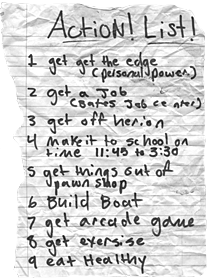 Action! List!
1 get get the edge
(personal power)
2 get a Job
(Bates Job center)
3 get off herion
4 make it to school on
time 11:45 to 3:30
5 get things out of
pawn shop
6 Build Boat
7 get arcade game
8 get exersise
9 eat Healthy